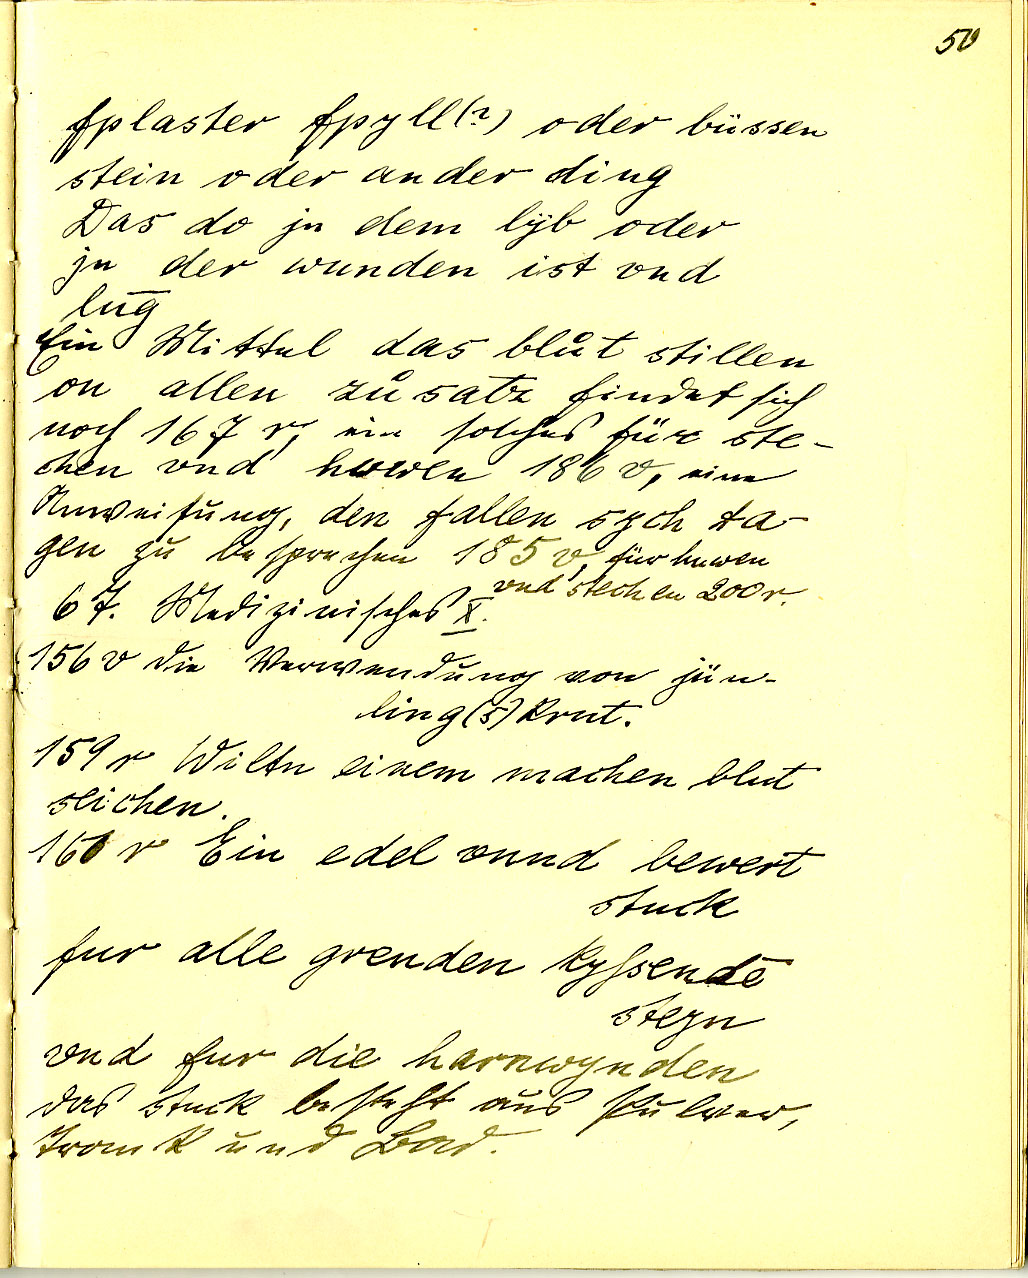 50
fplaster fpyll(?) oder büssen
stein oder ander ding
Das do jn dem lyb oder
jn der wunden ist vnd
lūg
Ein Mittel das blůt stillen
on allen zůsatz findet sich
noch 167 r, ein solches fürs ste-
chen vnd howen 186 v, eine
Anweisung, den fallen sych ta-
gen zu besprechen 185 v, für huwen
vnd stechen 200 r.
67. Medizinisches X.
156 v die Verwendung von jün-
ling(s)krut.
159 r Wiltu einem machen blut
seichen.
160 r Ein edel vnnd bewert
stuck
fur alle grenden kyssendē
steyn
vnd fur die harnwynden
das stuck besteht aus Pulver,
Trank und Bad.